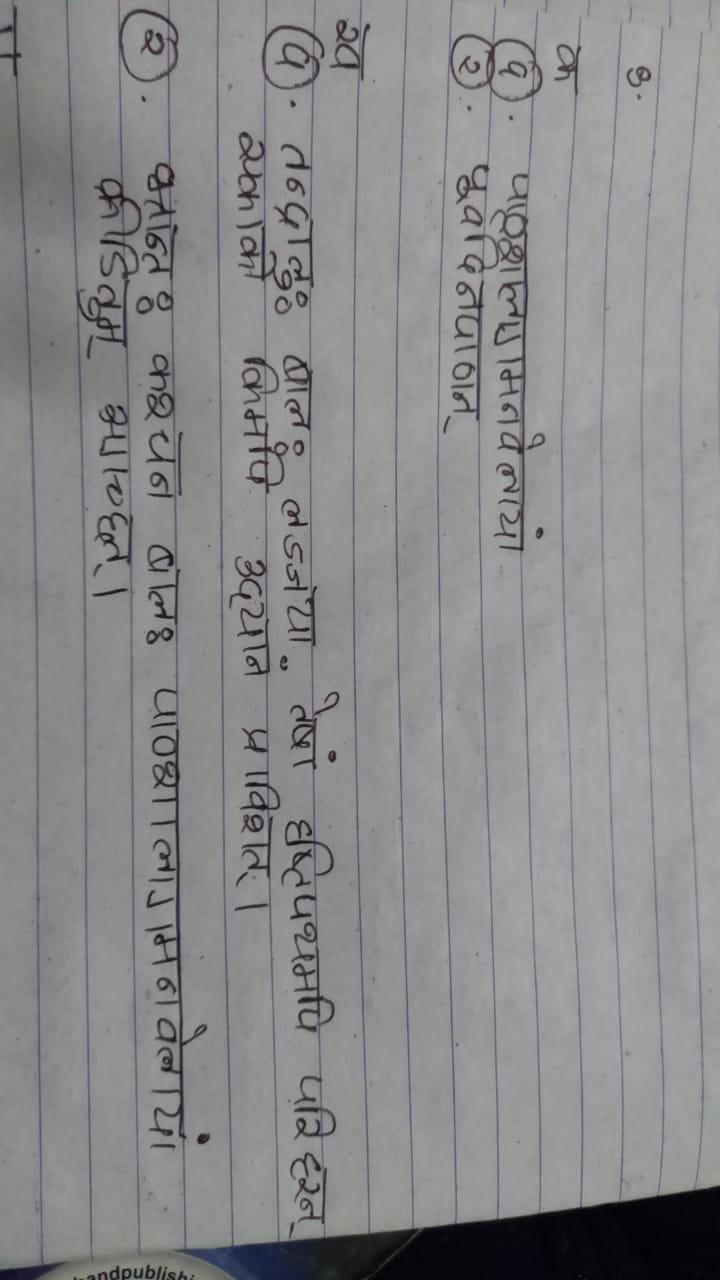 3.
क
(१). पाठशालागमनवेलायां
(२). पूर्वादिनपाठान्
ख
(१). तन्द्रालुः बालः लज्जया तेषां दृष्टिपथमपि परिहरन्
एकाकी किमपि उद्यानं प्राविशत्।
(२). भ्रान्तः कश्चन बालः पाठशालागमनवेलायां
क्रीडितुम् अगच्छत्।
andpublishi